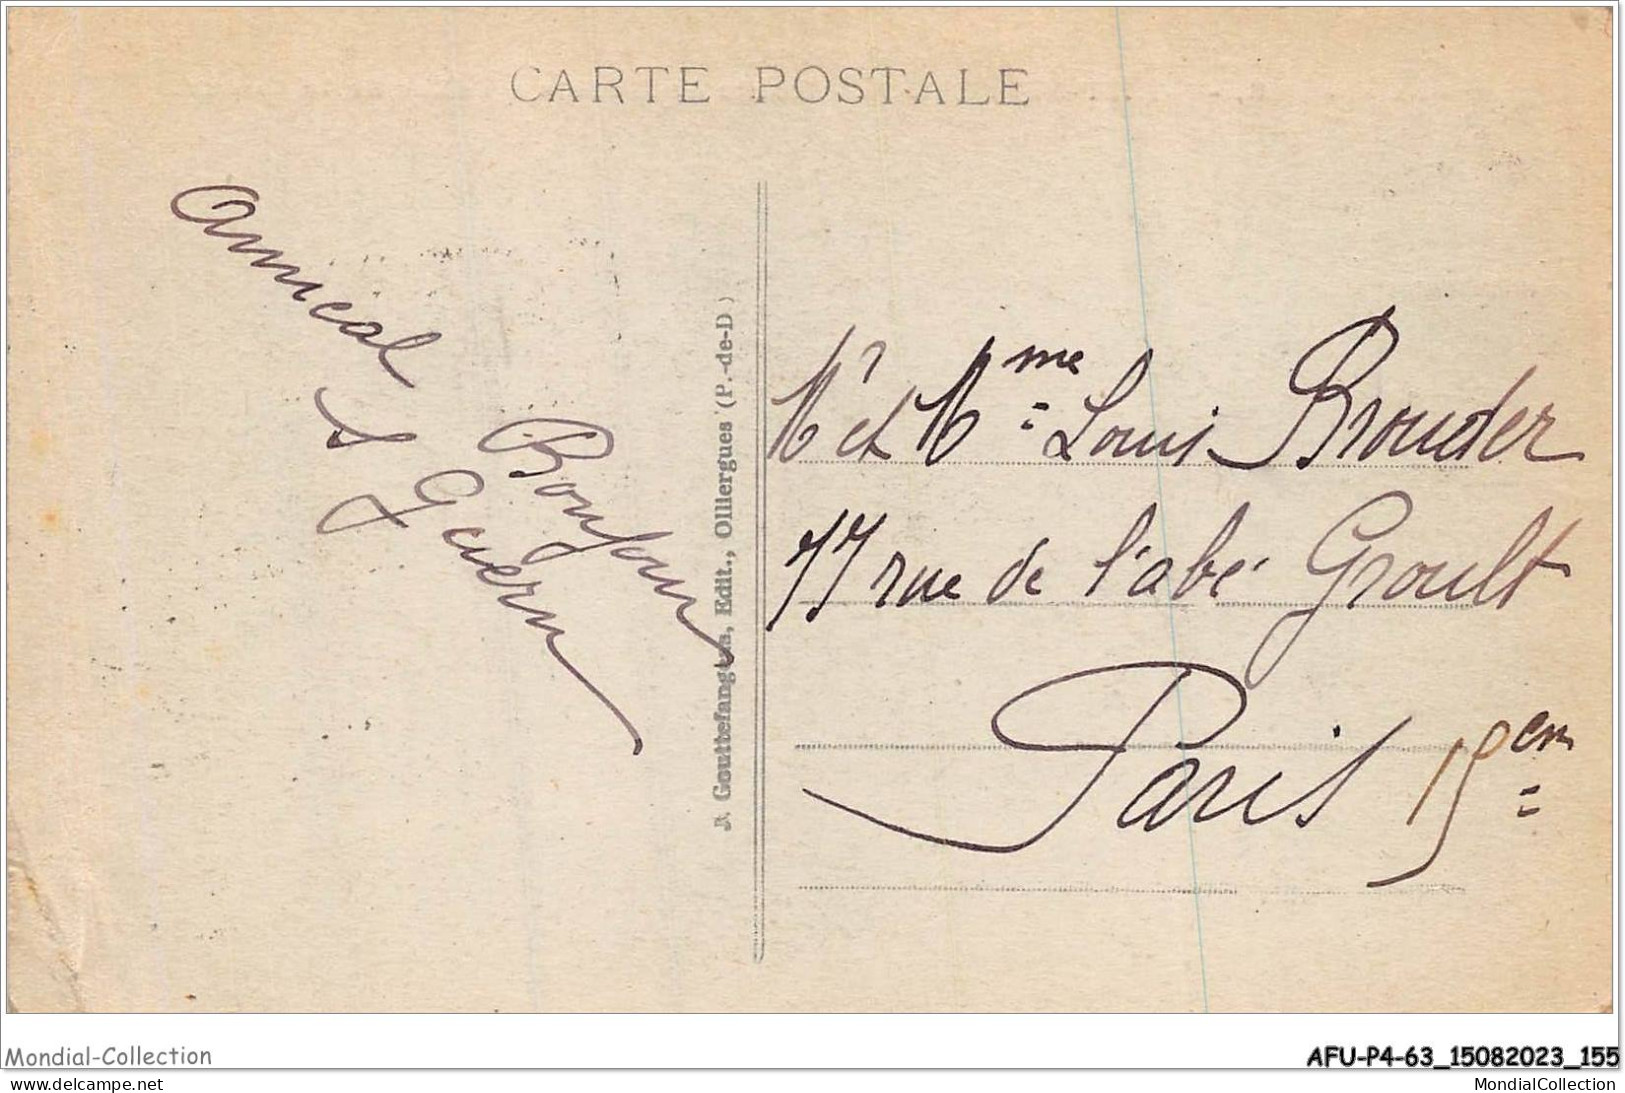 CARTE POSTALE
Amical
Bonjour
S Guern
J. Gouttefangeas, Edit., Olliergues (P.-de-D)
Mr et Mme Louis Brouder
77 rue de l'abé Groult
Paris 15em
Mondial-Collection
AFU-P4-63_15082023_155
www.delcampe.net
MondialCollection